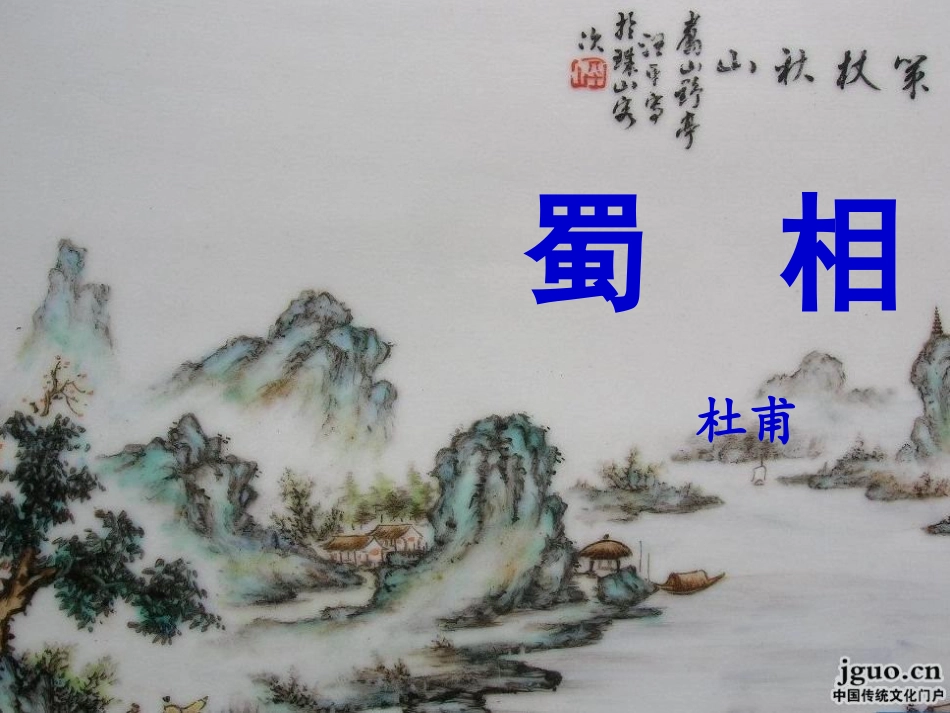 策杖秋山
嵩山野亭
汪平写
於珠山客
次
蜀 相
杜甫
jguo.cn
中国传统文化门户